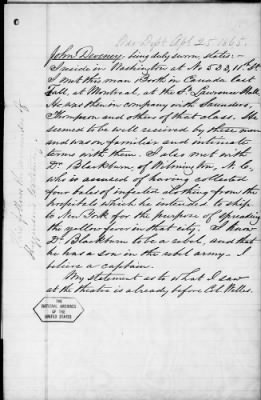 War Dept Apl 25 1865.
John Deveney, being duly sworn, states: -
I reside in Washington at No 533, 11th St
I met this man Booth in Canada last
Fall, at Montreal, at the St. Lawrence Hall.
He was then in company with Saunders,
Thompson and others of that class. He
seemed to be well received by these men
and was on familiar and intimate
terms with them. I also met with
Dr. Blackburn, of Wilmington, N. C.
who is accused of having collected
four bales of infected clothing from the
hospitals which he intended to ship
to New York for the purpose of spreading
the yellow fever in that city. I know
Dr Blackburn to be a rebel, and that
he has a son in the rebel army - I
believe a captain.
My statement as to what I saw
at the theatre is already before Col. Welles.
THE
NATIONAL ARCHIVES
OF THE
UNITED STATES